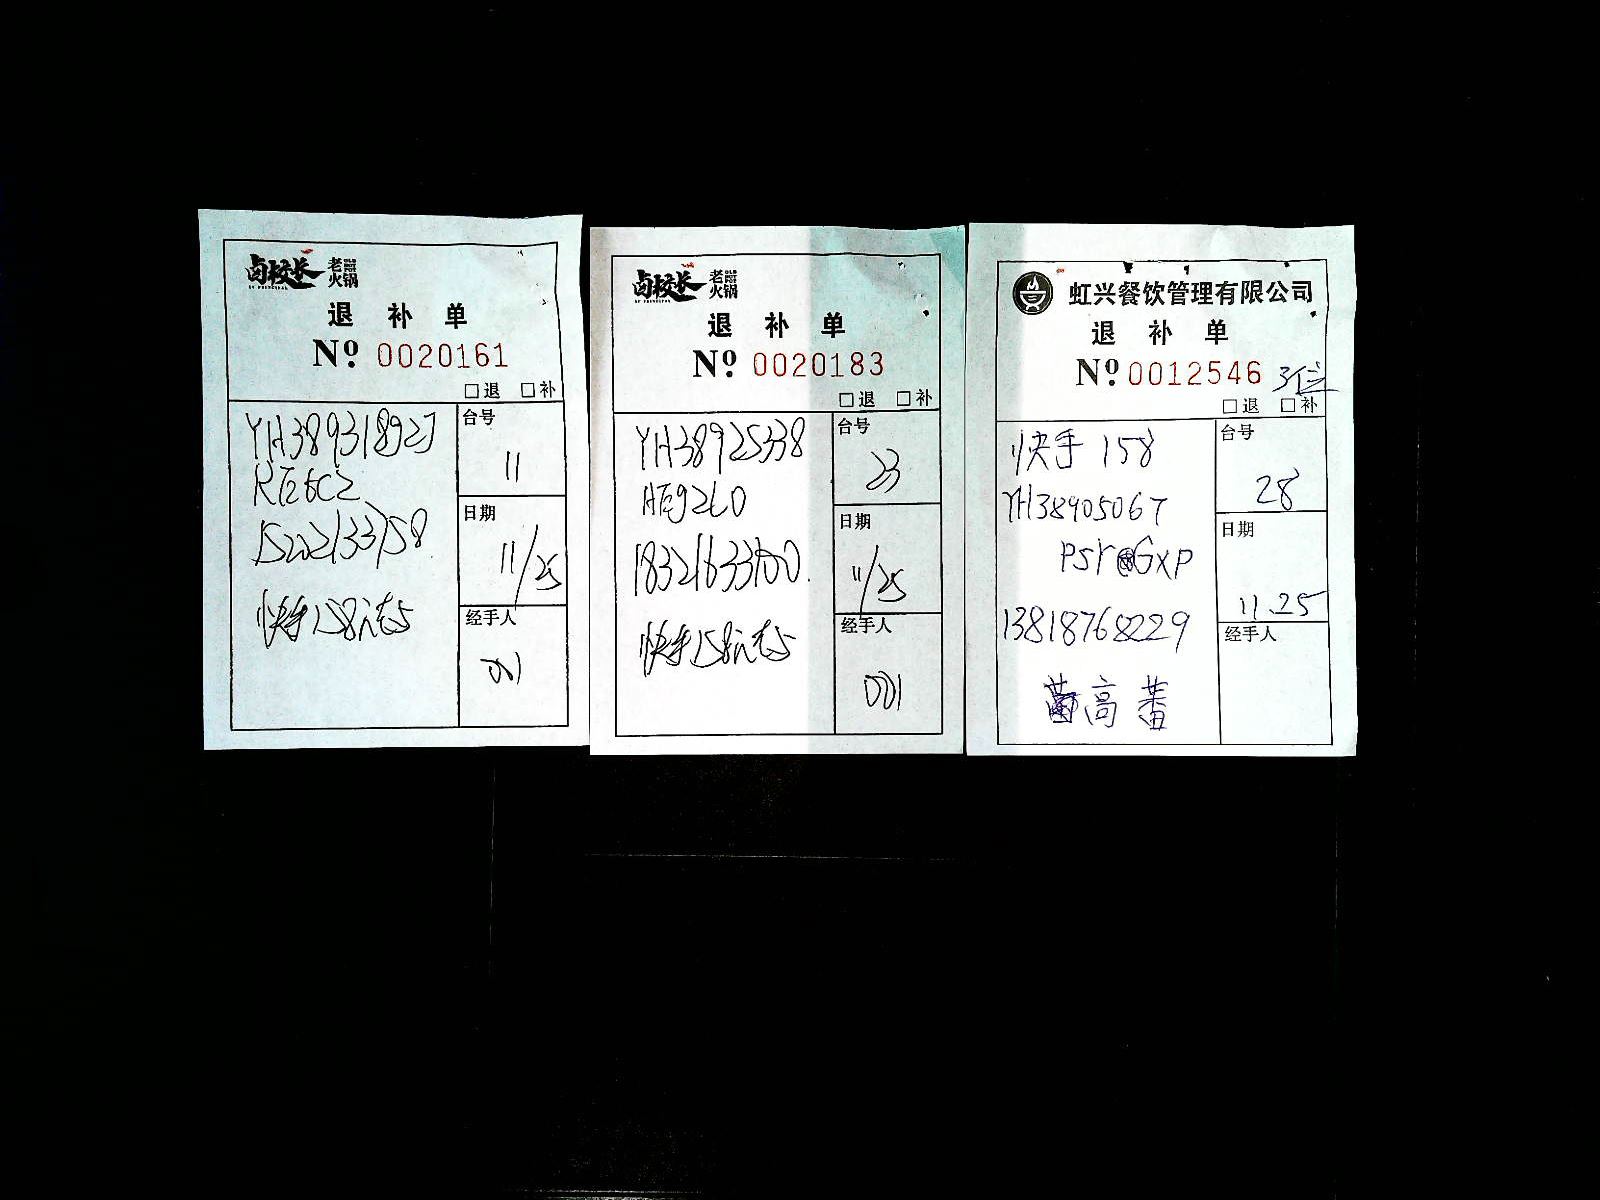 卤校长 老火锅
退补单
No. 0020161
□退 □补
YH38931892J
台号
11
15202133758
日期
11/25
快手158元态5
经手人
001
卤校长 老火锅
退补单
No. 0020183
□退 □补
YH38925338
台号
23
HE92L0
日期
11/25
经手人
001
虹兴餐饮管理有限公司
退补单
No. 0012546 3位
□退 □补
快手 158
台号
28
YH38905067
日期
PSY GXP
11.25
13818768229
经手人
高蕃